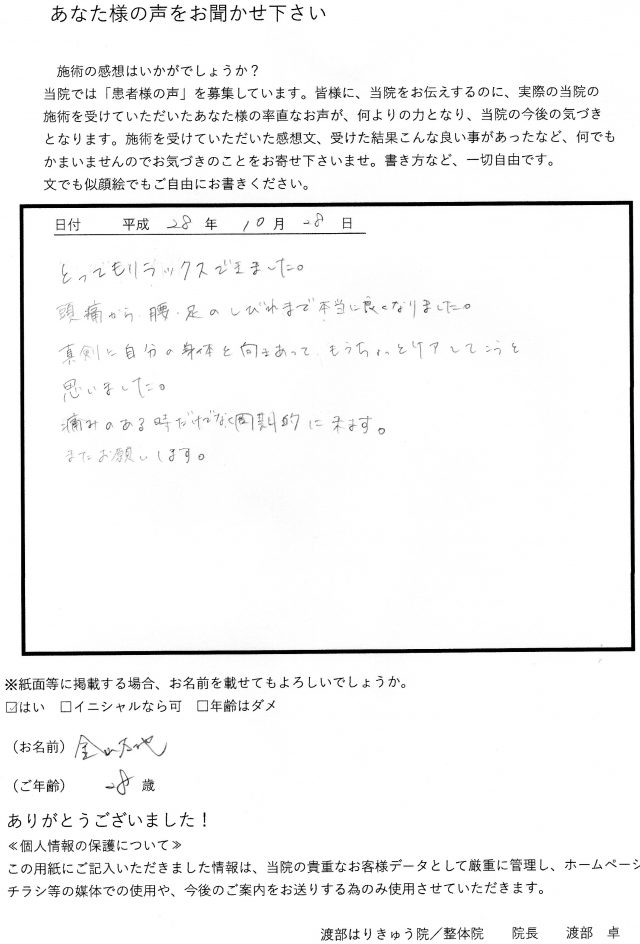 あなた様の声をお聞かせ下さい
施術の感想はいかがでしょうか？
当院では「患者様の声」を募集しています。皆様に、当院をお伝えするのに、実際の当院の
施術を受けていただいたあなた様の率直なお声が、何よりの力となり、当院の今後の気づき
となります。施術を受けていただいた感想文、受けた結果こんな良い事があったなど、何でも
かまいませんのでお気づきのことをお寄せ下さいませ。書き方など、一切自由です。
文でも似顔絵でもご自由にお書きください。
日付 平成 28 年 10 月 28 日
とってもリラックスできました。
頭痛から、腰・足のしびれまで本当に良くなりました。
真剣に自分の身体と向きあって、もうちょっとケアしてこうと
思いました。
痛みのある時だけでなく周期的に来ます。
またお願いします。
※紙面等に掲載する場合、お名前を載せてもよろしいでしょうか。
☑はい □イニシャルなら可 □年齢はダメ
（お名前）
（ご年齢） 28 歳
ありがとうございました！
≪個人情報の保護について≫
この用紙にご記入いただきました情報は、当院の貴重なお客様データとして厳重に管理し、ホームページ
チラシ等の媒体での使用や、今後のご案内をお送りする為のみ使用させていただきます。
渡部はりきゅう院／整体院 院長 渡部 卓